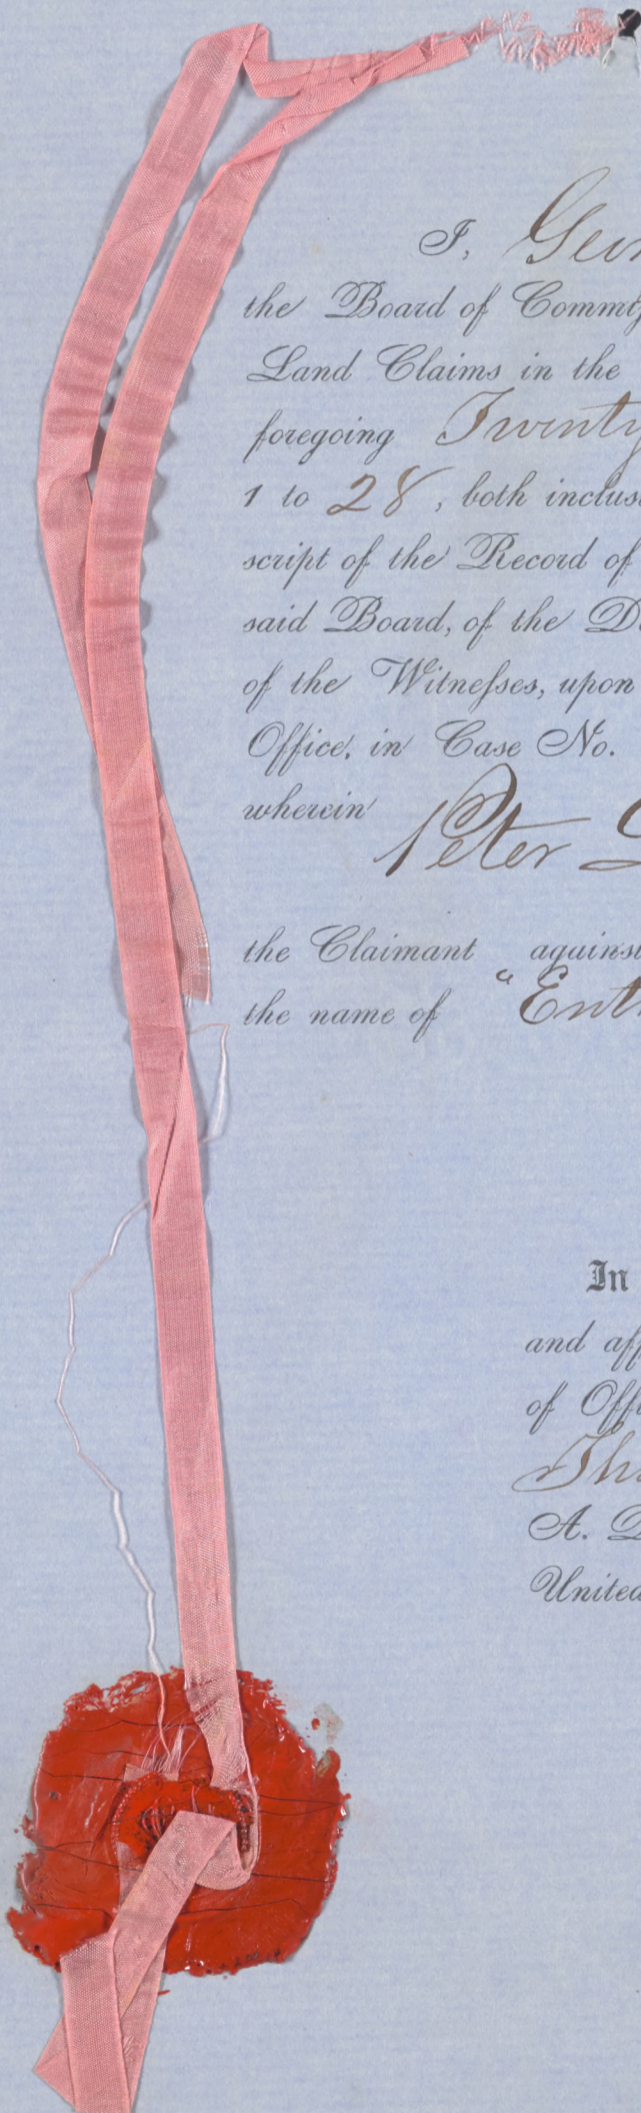 I, Geor
the Board of Commiſ
Land Claims in the
foregoing Twenty
1 to 28, both inclus
script of the Record of
said Board, of the D
of the Witneſses, upon
Office, in Case No.
wherein Peter
the Claimant against
the name of "Ent
In
and aff
of Offi
Thi
A. D
United